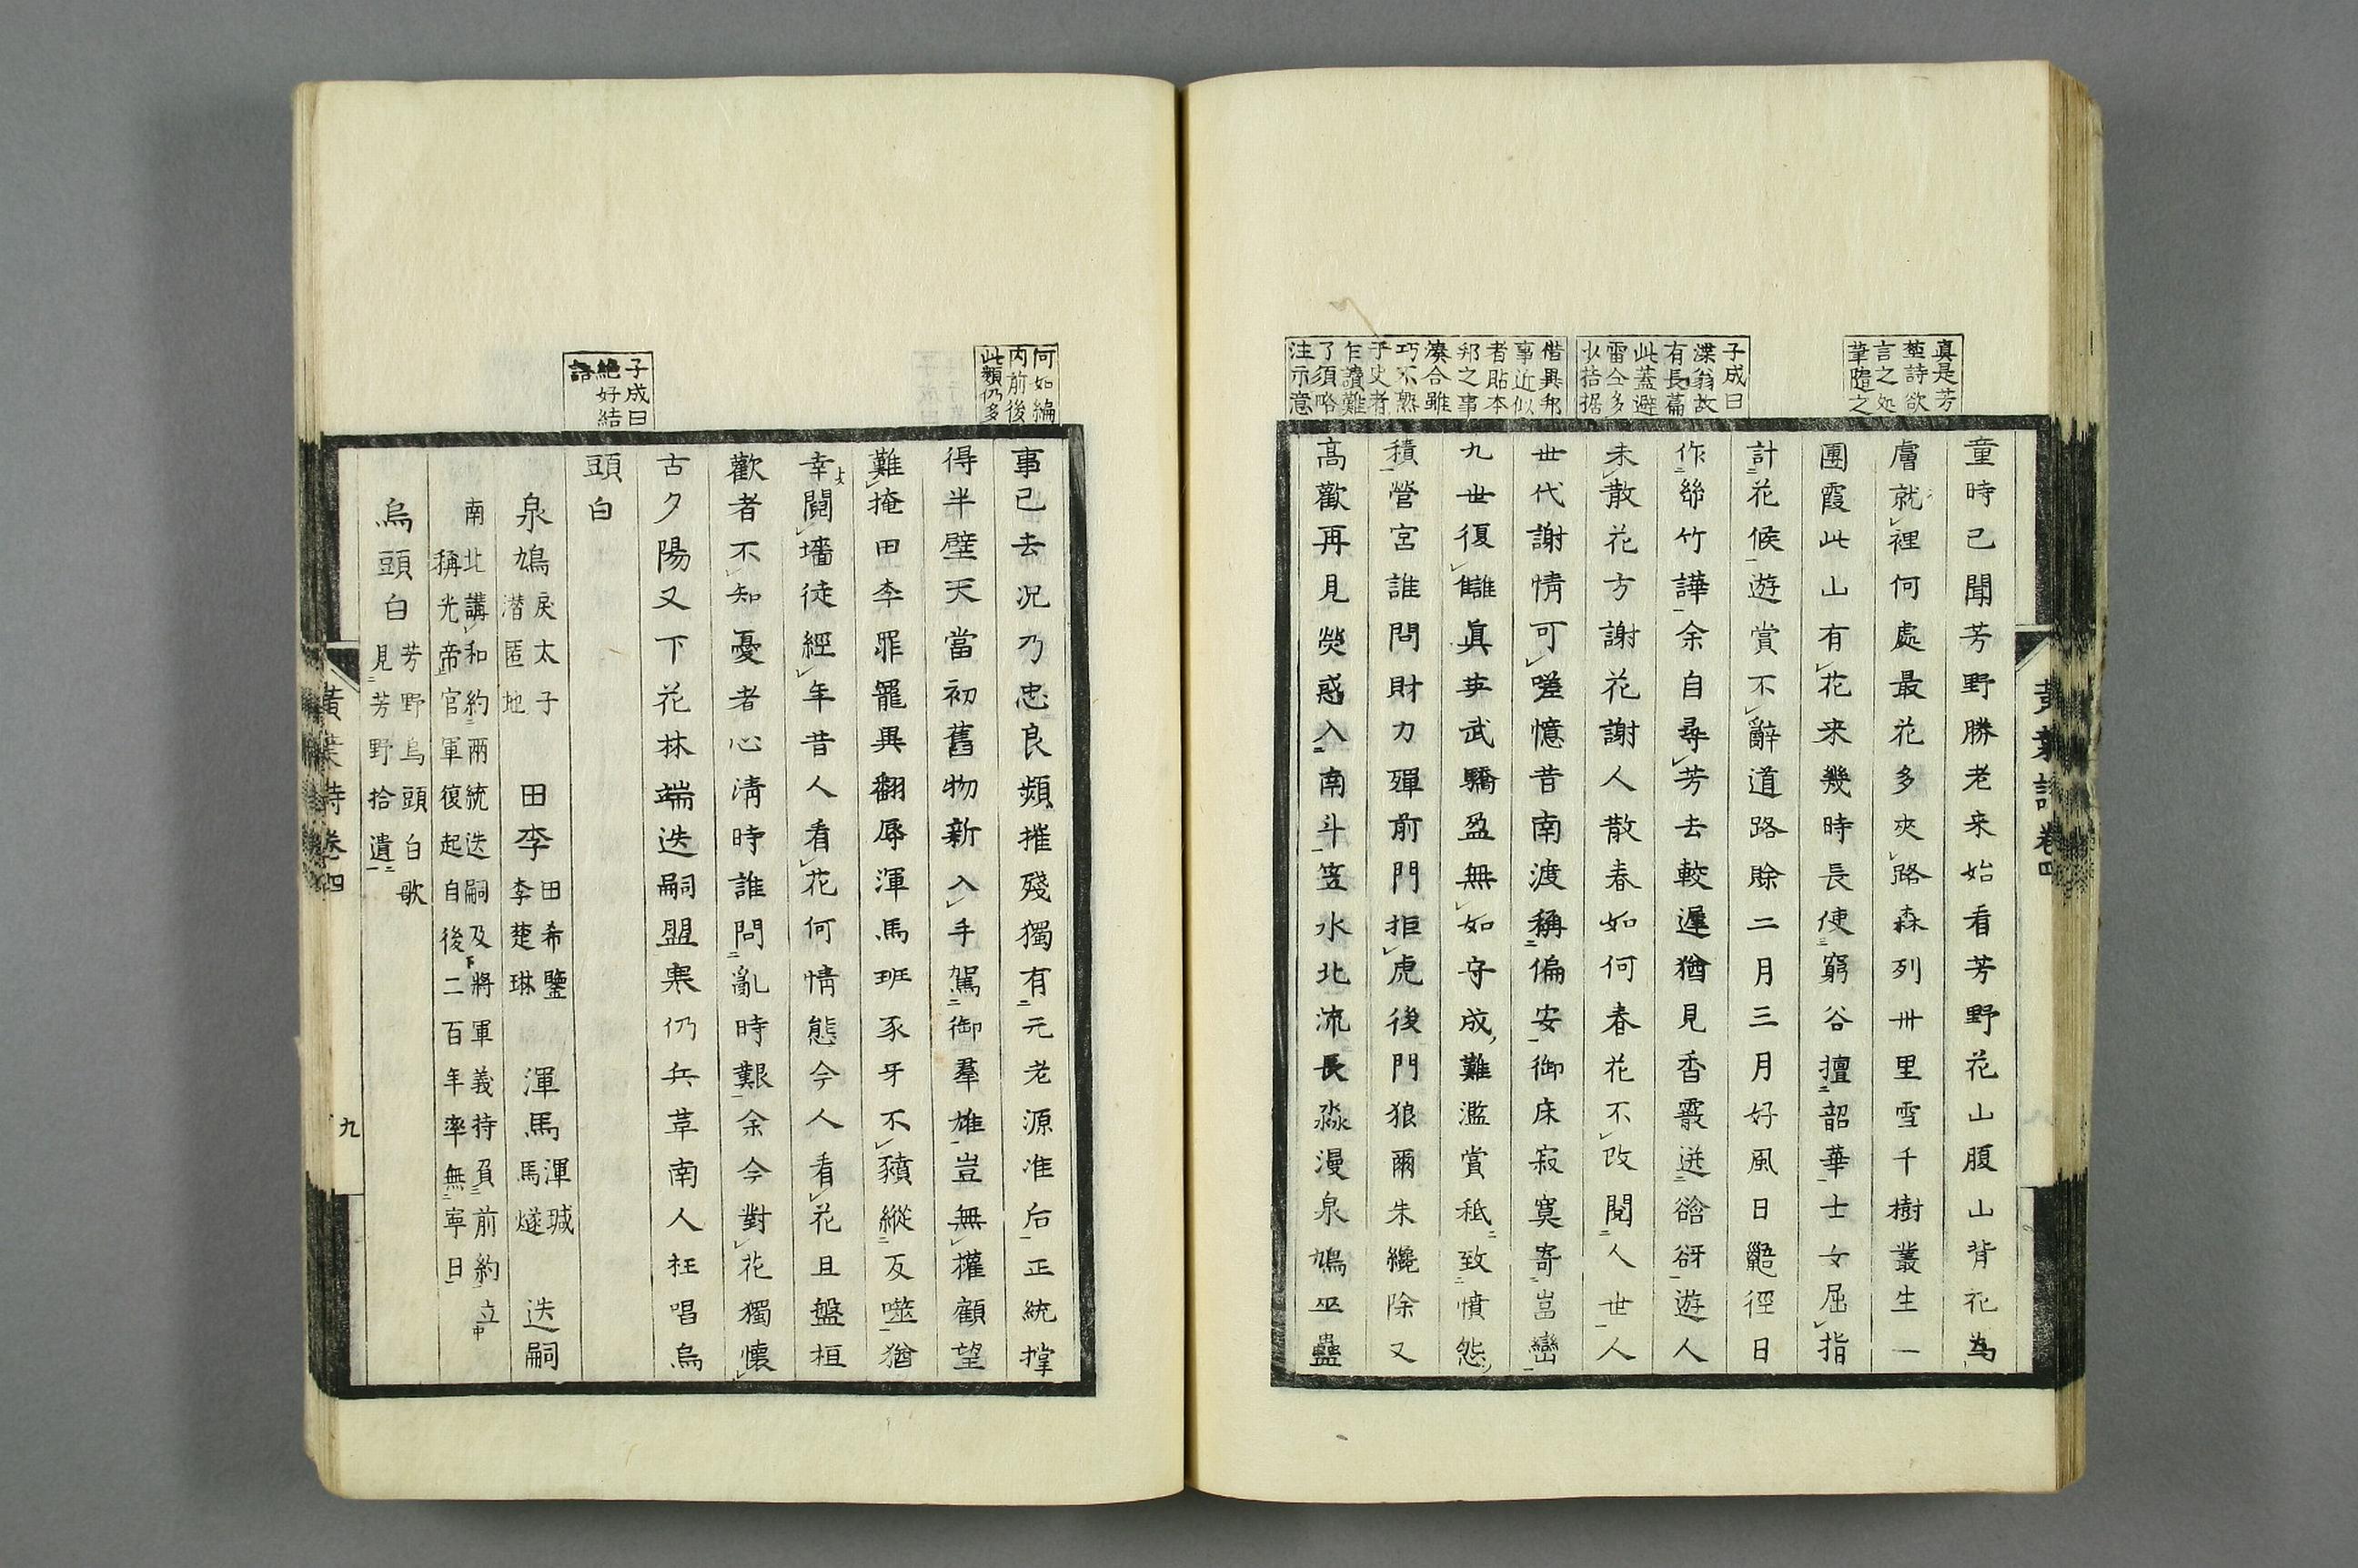 真是芳
埜詩欲
言之処
筆隨之
子成曰
渫翁故
有長篇
此蓋避
雷仝多
以拮据
借異邦
事近似
者貼本
邦之事
湊合雖
巧不熟
于史者
乍讀難
了須略
注示意
童時已聞芳野勝老来始看芳野花山腹山背花為
膚就裡何處最花多夾路森列卅里雪千樹叢生一
團霞此山有花来幾時長使窮谷擅韶華士女屈指
計花候遊賞不辭道路賒二月三月好風日鼯徑日
作絲竹譁余自尋芳去較遲猶見香霰迸谽谺遊人
未散花方謝花謝人散春如何春花不改閱人世人
世代謝情可嗟憶昔南渡稱偏安御床寂寞寄崮巒
九世復讎真英武驕盈無如守成難濫賞秪致憤怨
積營宮誰問財力殫前門拒虎後門狼爾朱纔除又
高歡再見熒惑入南斗笠水北流長淼漫泉鳩巫蠱
黃葉詩 卷四
何如編
内前後
此類仍多
子成曰
絕好結
語
事已去況乃忠良頻摧殘獨有元老源准后正統撑
得半壁天當初舊物新入手駕御羣雄豈無權顧望
難掩田李罪羅異翻辱渾馬班豕牙不豶縱反噬猶
幸鬩墻徒經年昔人看花何情態今人看花且盤桓
歡者不知憂者心清時誰問亂時艱余今對花獨懷
古夕陽又下花林端迭嗣盟寒仍兵革南人枉唱烏
頭白
泉鳩 戻太子潜匿地 田李 田希鑒李楚琳 渾馬 渾瑊馬燧 迭嗣
南北講和約兩統迭嗣及將軍義持負前約立
稱光帝官軍復起自後二百年率無寧日
烏頭白 芳野烏頭白歌見芳野拾遺
黃葉詩 卷四
九